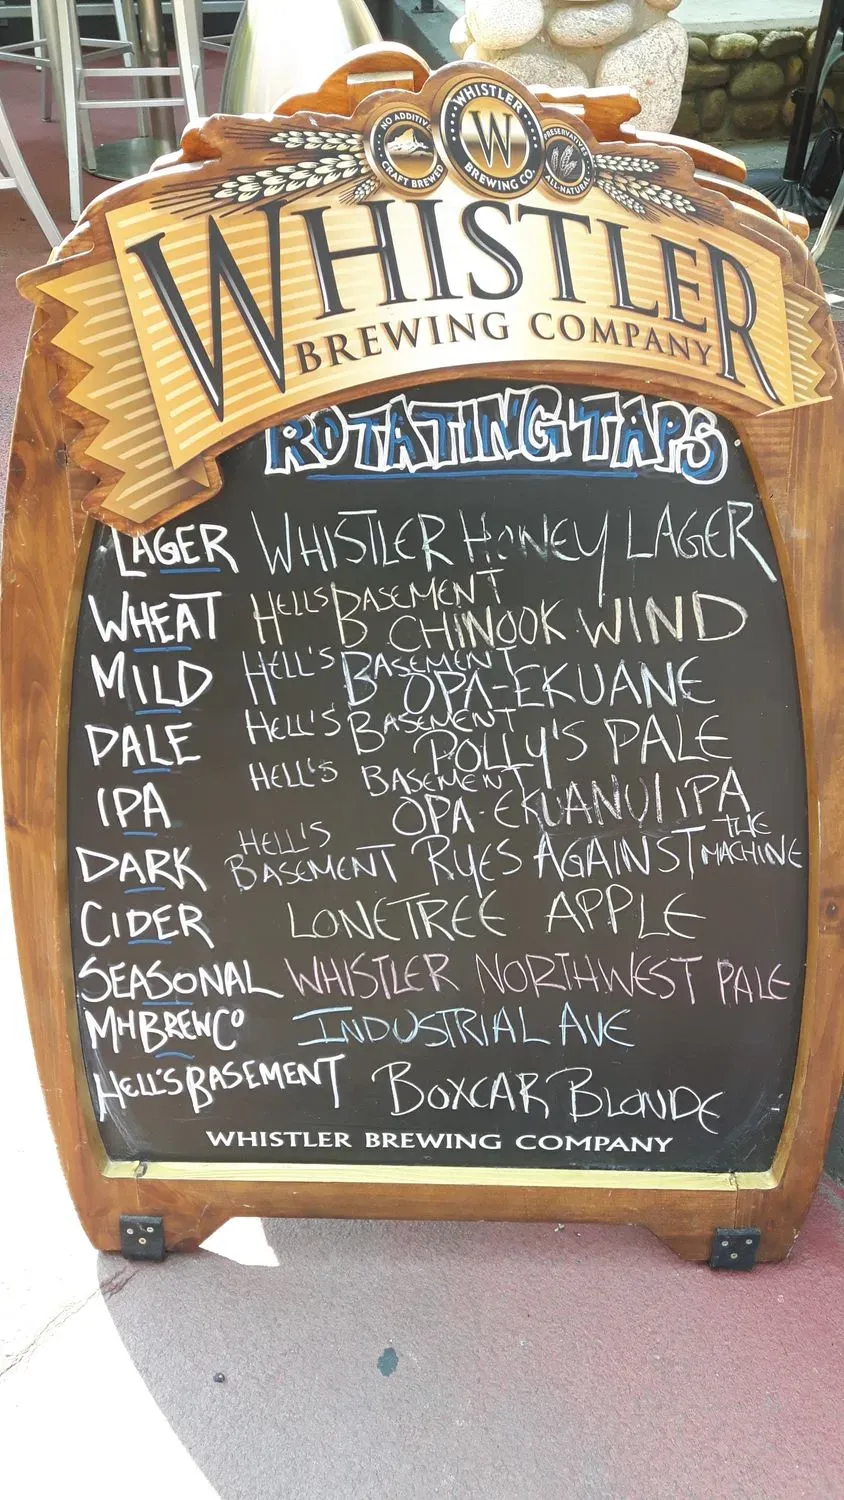 NO ADDITIVES
CRAFT BREWED
WHISTLER
W
BREWING CO.
PRESERVATIVES
ALL-NATURAL
WHISTLER
BREWING COMPANY
ROTATING TAPS
LAGER WHISTLER HONEY LAGER
WHEAT HELLS BASEMENT CHINOOK WIND
MILD HELL'S BASEMENT OPA-EKUANE
PALE HELL'S BASEMENT POLLY'S PALE
IPA HELL'S BASEMENT OPA-EKUANUIIPA
DARK HELL'S BASEMENT RYES AGAINST THE MACHINE
CIDER LONETREE APPLE
SEASONAL WHISTLER NORTHWEST PALE
MHBREWCO INDUSTRIAL AVE
HELL'S BASEMENT BOXCAR BLONDE
WHISTLER BREWING COMPANY